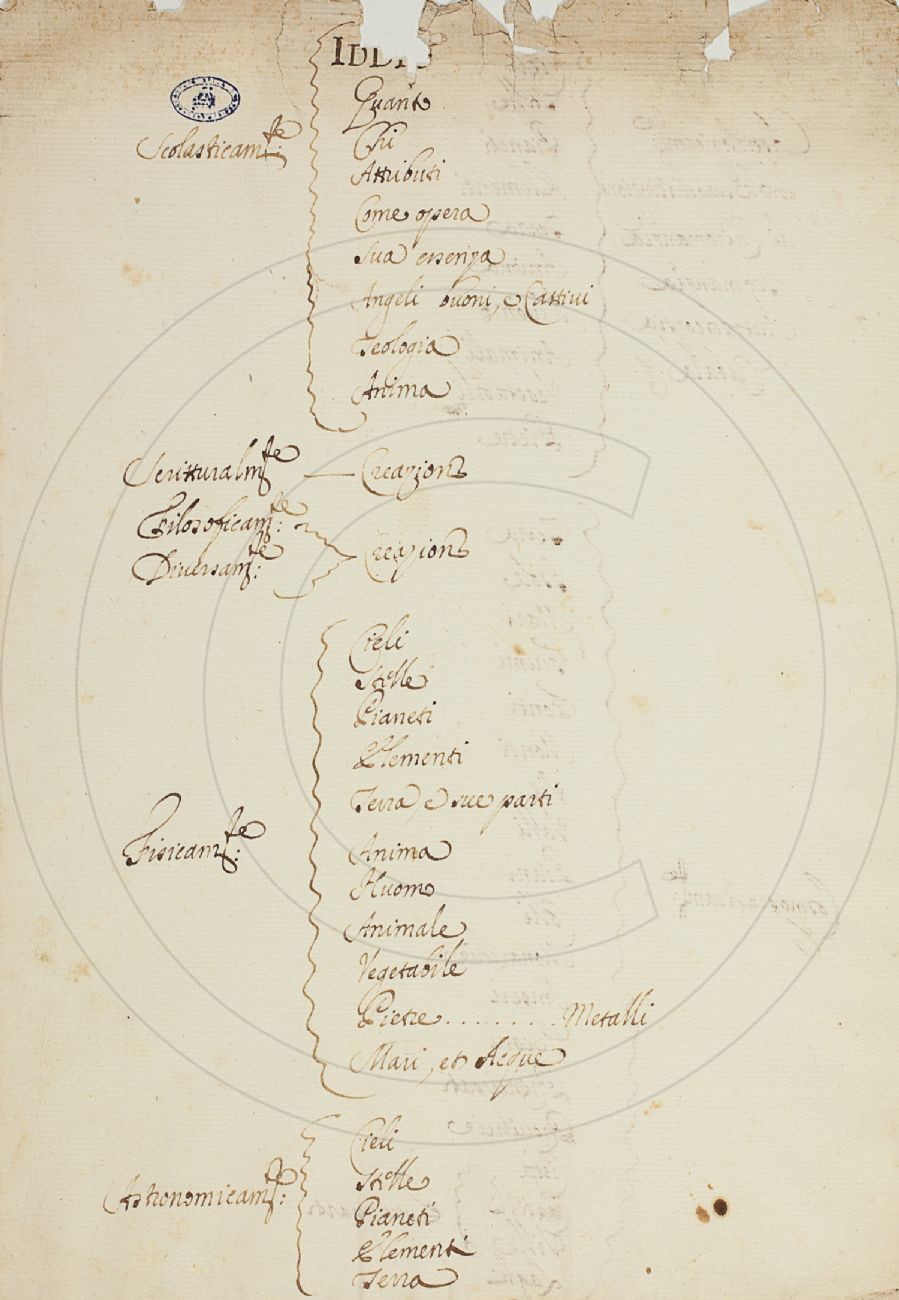 IDDIO
Quant
Scolasticam.te
Chi
Attributi
Come opera
Sua essenza
Angeli buoni, e Cattivi
Teologia
Anima
Scritturalm.te — Creazion
Filosoficam.te:
Diversam.te: Creazion
Cieli
Stelle
Pianeti
Elementi
Terra, e sue parti
Fisicam.te:
Anima
Huomo
Animale
Vegetabile
Pietre........Metalli
Mari, et Acque
Cieli
Stelle
Astronomicam.te:
Pianeti
Elementi
Terra